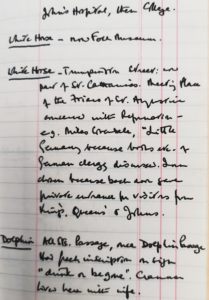 John's Hospital, then College.
White Horse - now Folk Museum.
White Horse - Trumpington Street: in
part of St. Catharine's. Meeting Place
of the Friars of St. Augustine
connected with Reformation -
e.g. Miles Coverdale, "Little
Germany because books etc. of
German clergy discussed. Inn
chosen because back door gave
private entrance for visitors from
Kings, Queens' & Johns.
Dolphin - All Sts. Passage, once Dolphin Passage
Had inscription on sign
"drink or begone". Cranmer
lived here with wife.